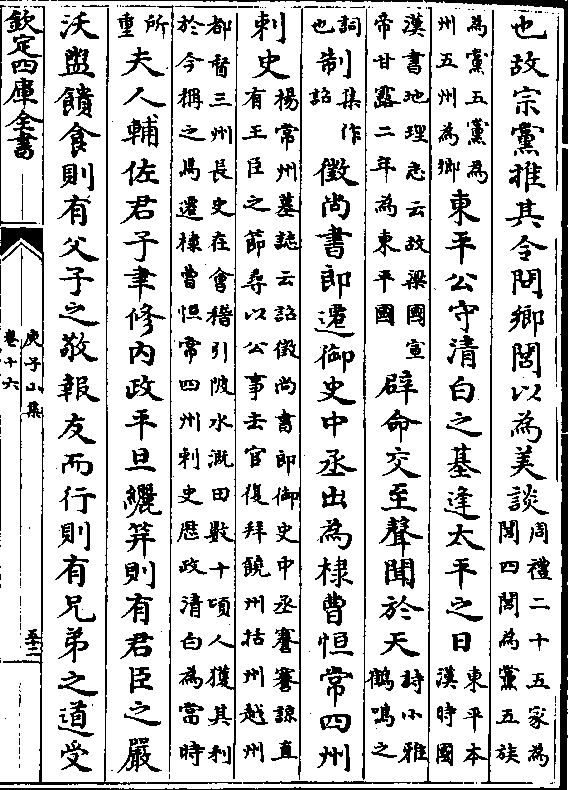 也故宗黨推其令問鄉閭以為美談周禮二十五家為閭四閭為黨五族
為黨五黨為州五州為鄉東平公守清白之基逢太平之日東平本漢時國
漢書地理志云故梁國宣帝甘露二年為東平國辟命交至聲聞於天詩小雅鶴鳴之
詞也制集作詔徵尚書郎遷御史中丞出為棣曹恒常四州
刺史楊常州墓誌云詔徵尚書郎御史中丞謇謇諒直有王臣之節尋以公事去官復拜饒州括州越州
都督三州長史在會稽引陂水溉田數十頃人獲其利於今稱之馬遷棣曹恒常四州刺史歷政清白為當時
所重夫人輔佐君子聿修內政平旦纚笄則有君臣之嚴
沃盥饋食則有父子之敬報友而行則有兄弟之道受
欽定四庫全書
庾子山集
卷十六